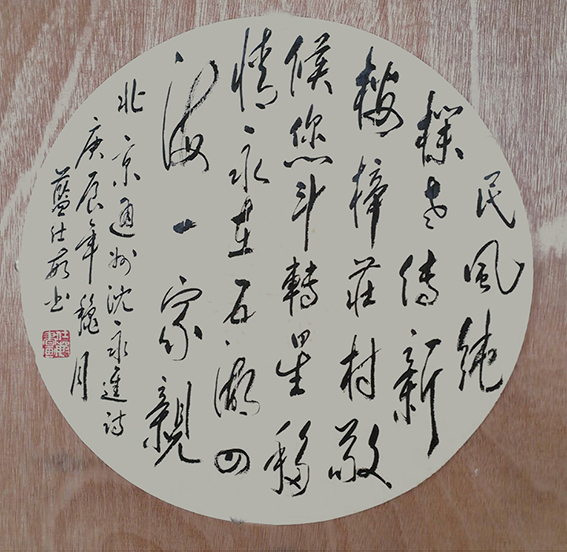 民風純
樸老傳新
樓梓莊村敬
候您斗轉星移
情永在石湖四
海一家親
北京通州沈永進詩
庚辰年月
藍仕書